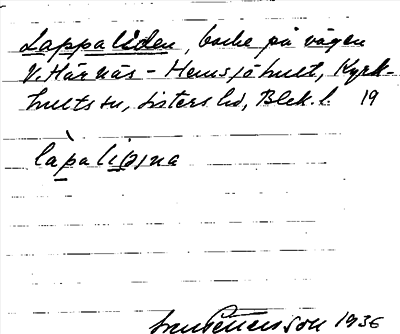 Lappaliden, backe på vägen
V. Härnäs - Hemsjöhult, Kyrk-
hults sn, Listers hd, Blek. l. 19
làpali(ə)na
Pettersson 1936